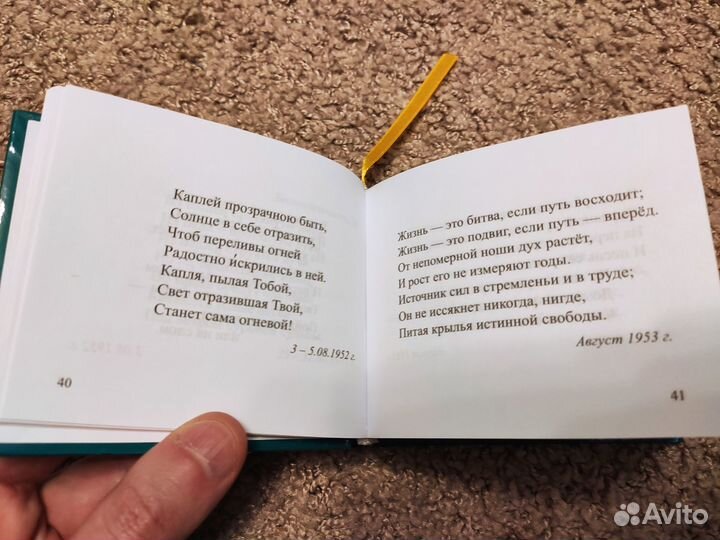 Каплей прозрачною быть,
Солнце в себе отразить,
Чтоб переливы огней
Радостно и́скрились в ней.
Капля, пылая Тобой,
Свет отразившая Твой,
Станет сама огневой!
3 – 5.08.1952 г.
40
Жизнь — это битва, если путь восходит;
Жизнь — это подвиг, если путь — вперёд.
От непомерной ноши дух растёт,
И рост его не измеряют годы.
Источник сил в стремленьи и в труде;
Он не иссякнет никогда, нигде,
Питая крылья истинной свободы.
Август 1953 г.
41
Avito